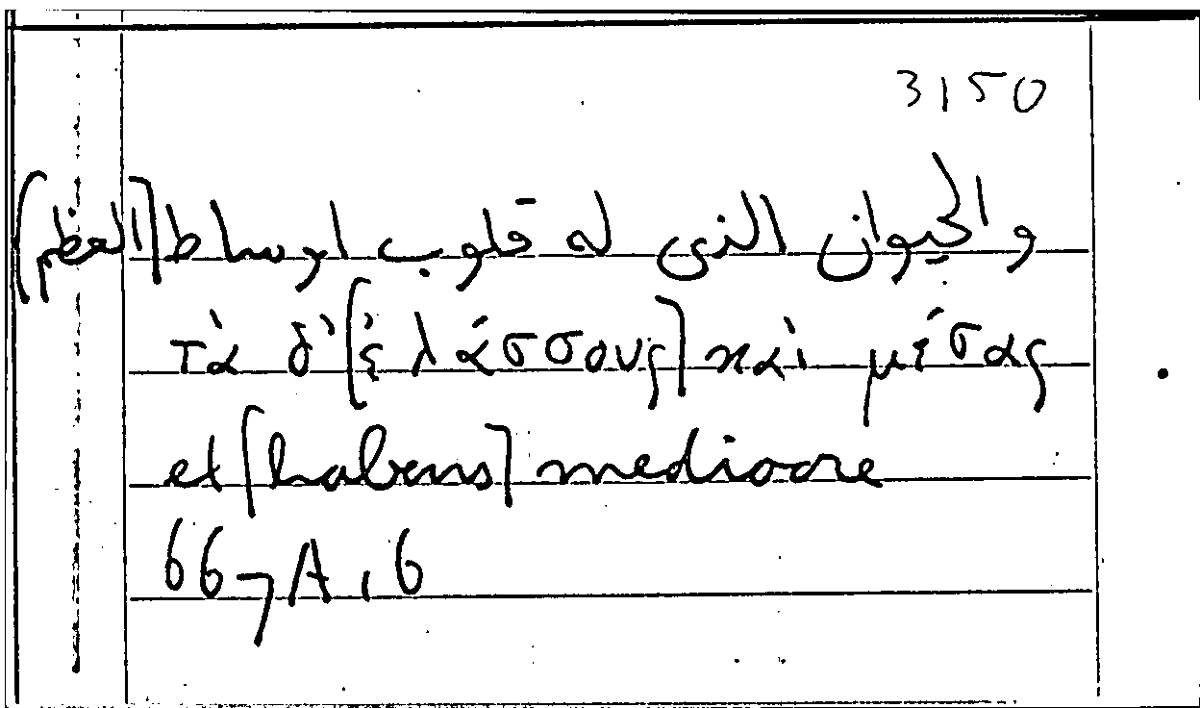 3150
والحيوان الذى له قلوب اوساط [العظم]
τὰ δ' [ἐλάσσους] καὶ μέσας
et [habens] mediocre
667A,6